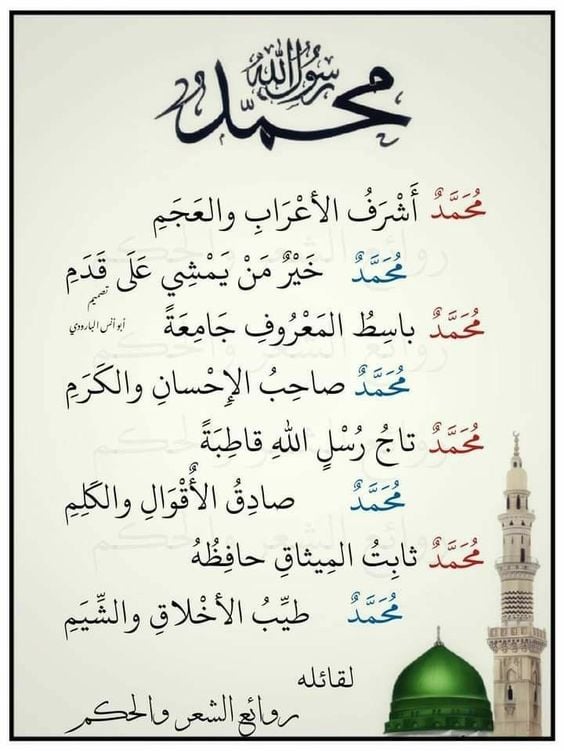 محمد رسول الله
مُحَمَّدٌ أَشْرَفُ الأعْرَابِ والعَجَمِ
مُحَمَّدٌ خَيْرُ مَنْ يَمْشِي عَلَى قَدَمِ
تصميم
أبو أنس البارودي
مُحَمَّدٌ باسِطُ المَعْرُوفِ جَامِعَةً
مُحَمَّدٌ صاحِبُ الإِحْسانِ والكَرَمِ
مُحَمَّدٌ تاجُ رُسْلِ اللهِ قاطِبَةً
مُحَمَّدٌ صادِقُ الأٌقْوَالِ والكَلِمِ
مُحَمَّدٌ ثابِتُ المِيثاقِ حافِظُهُ
مُحَمَّدٌ طيِّبُ الأخْلاقِ والشِّيَمِ
لقائله
روائع الشعر والحكم